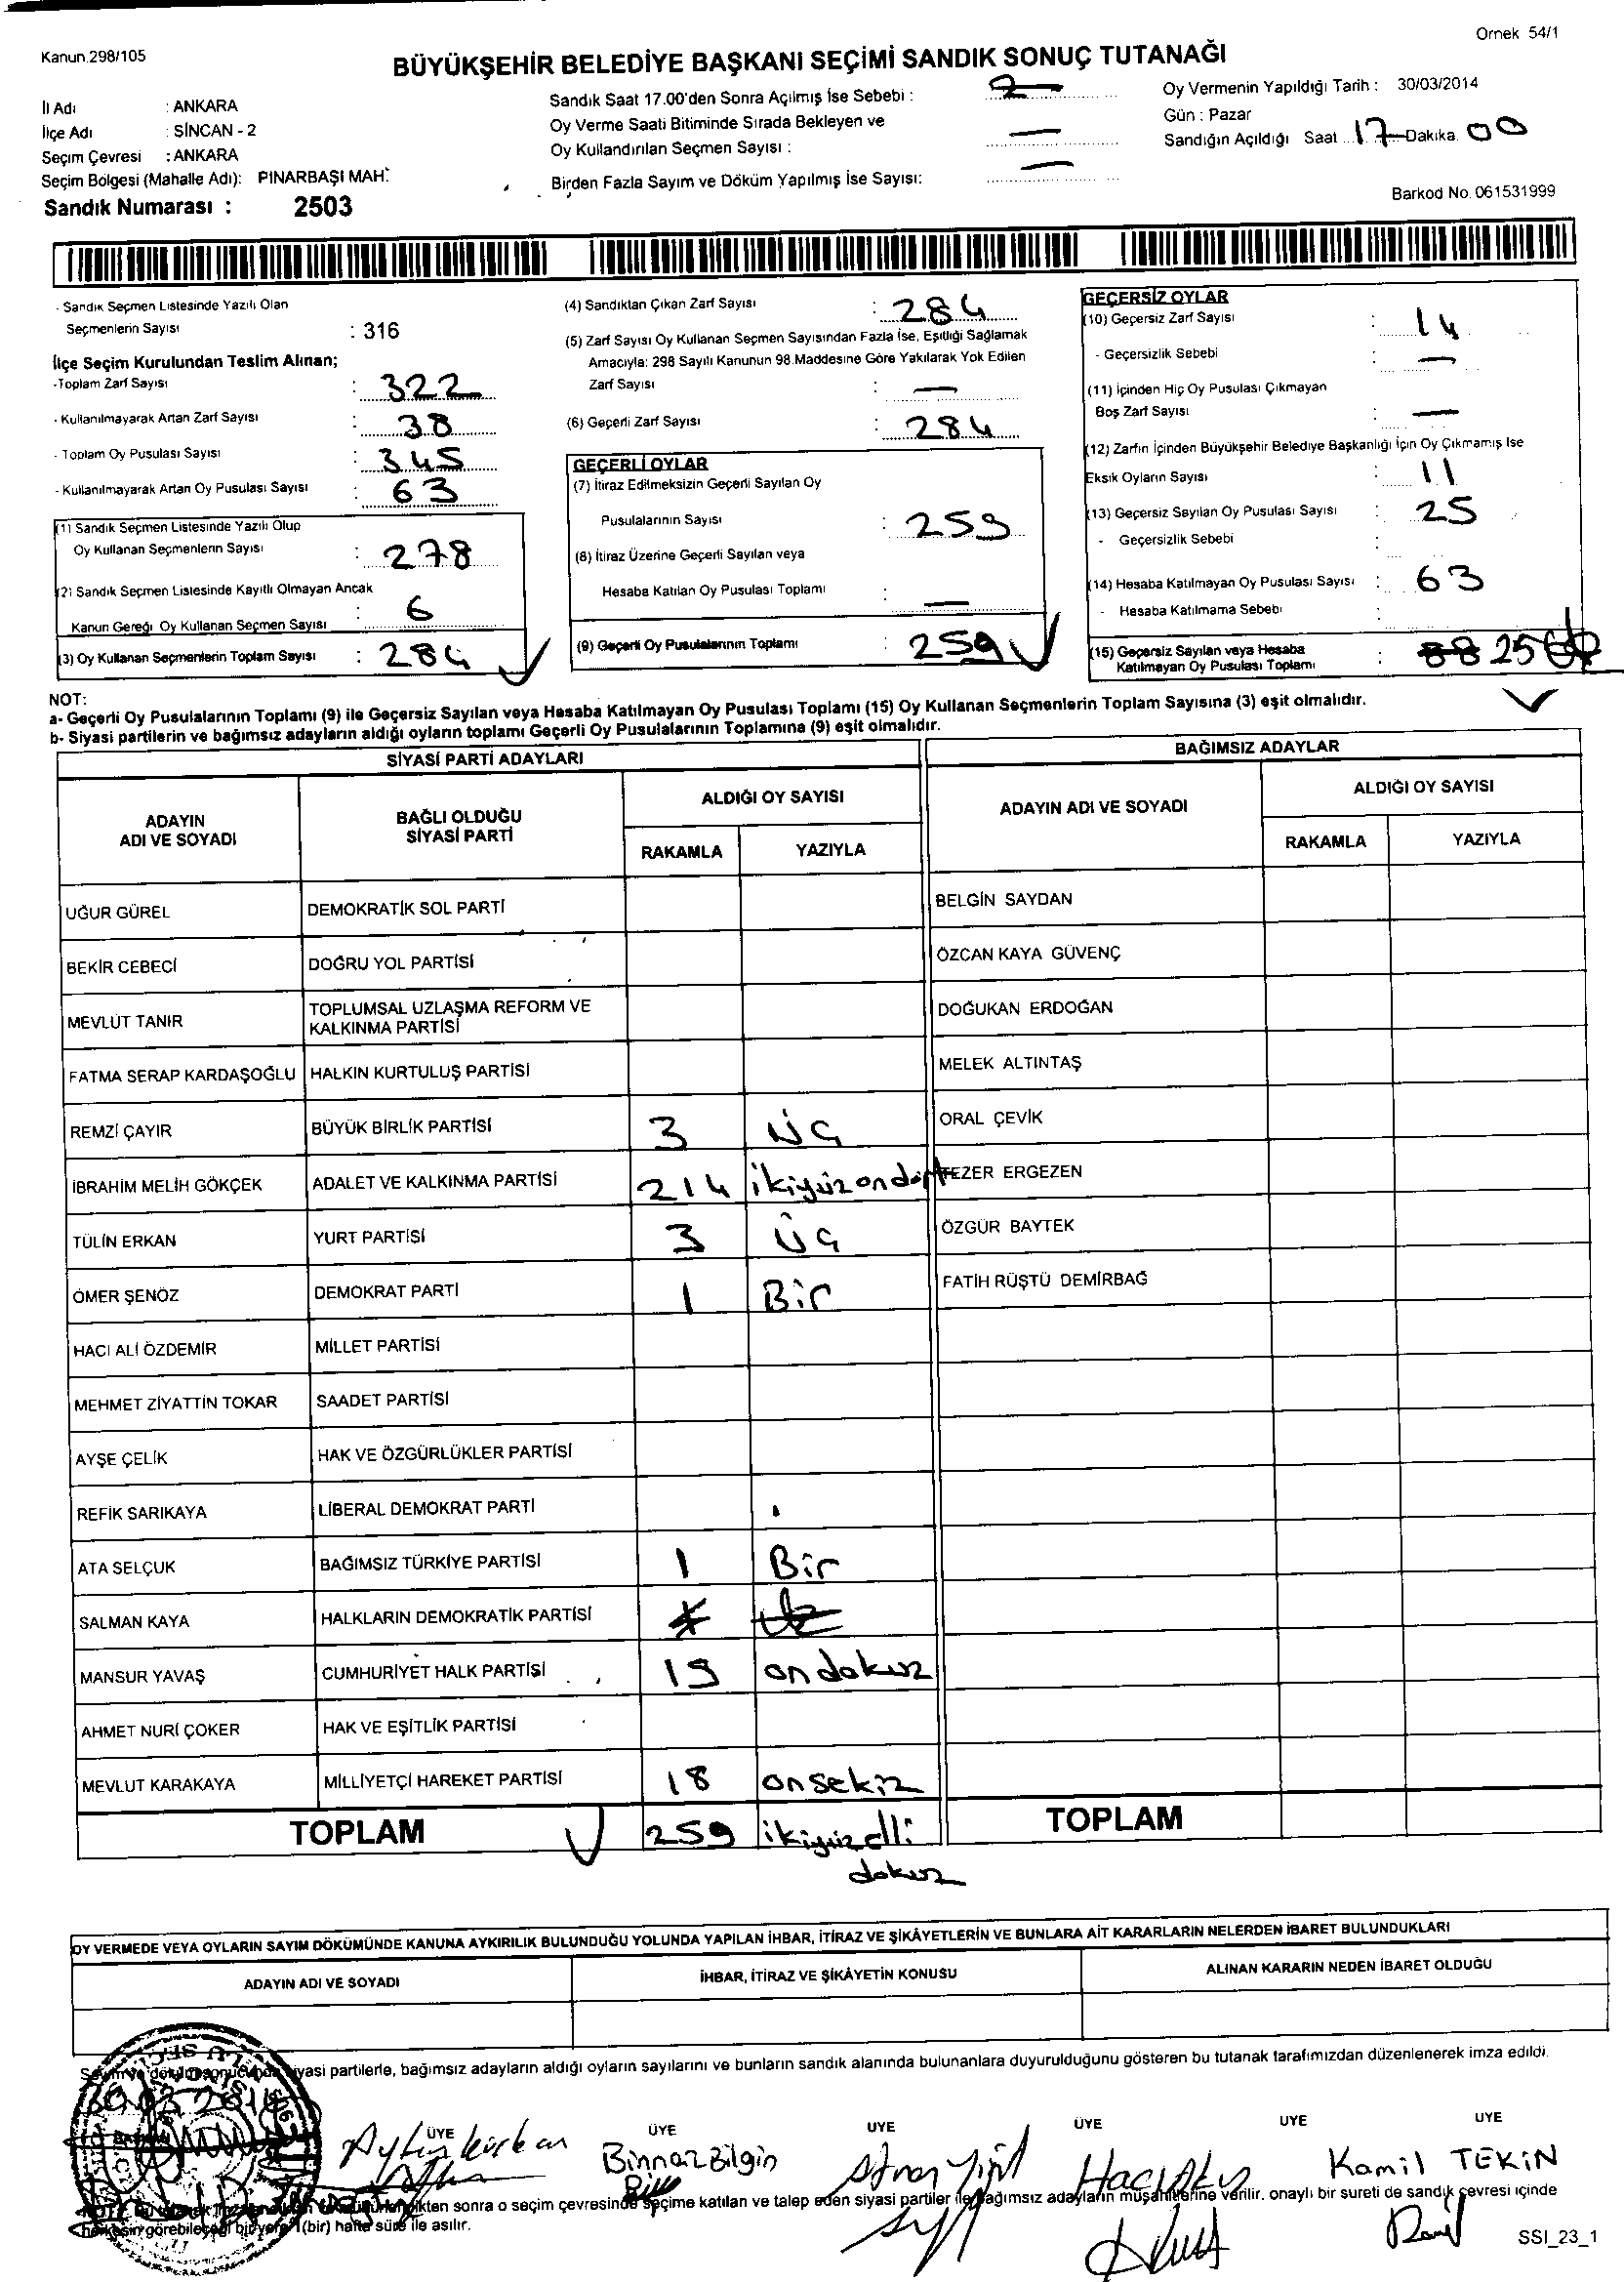 Kanun.298/105
Örnek 54/1
BÜYÜKŞEHİR BELEDİYE BAŞKANI SEÇİMİ SANDIK SONUÇ TUTANAĞI
İl Adı : ANKARA
İlçe Adı : SİNCAN - 2
Seçim Çevresi : ANKARA
Seçim Bölgesi (Mahalle Adı): PINARBAŞI MAH.
Sandık Numarası : 2503
Sandık Saat 17.00'den Sonra Açılmış İse Sebebi :
Oy Verme Saati Bitiminde Sırada Bekleyen ve
Oy Kullandırılan Seçmen Sayısı : —
Birden Fazla Sayım ve Döküm Yapılmış İse Sayısı: —
Oy Vermenin Yapıldığı Tarih : 30/03/2014
Gün : Pazar
Sandığın Açıldığı Saat 17 Dakika 00
Barkod No.061531999
- Sandık Seçmen Listesinde Yazılı Olan
Seçmenlerin Sayısı : 316
İlçe Seçim Kurulundan Teslim Alınan;
-Toplam Zarf Sayısı : 322
- Kullanılmayarak Artan Zarf Sayısı : 38
- Toplam Oy Pusulası Sayısı : 345
- Kullanılmayarak Artan Oy Pusulası Sayısı : 63
(1) Sandık Seçmen Listesinde Yazılı Olup
Oy Kullanan Seçmenlerin Sayısı : 278
(2) Sandık Seçmen Listesinde Kayıtlı Olmayan Ancak
Kanun Gereği Oy Kullanan Seçmen Sayısı : 6
(3) Oy Kullanan Seçmenlerin Toplam Sayısı : 284
(4) Sandıktan Çıkan Zarf Sayısı : 284
(5) Zarf Sayısı Oy Kullanan Seçmen Sayısından Fazla İse, Eşitliği Sağlamak
Amacıyla; 298 Sayılı Kanunun 98.Maddesine Göre Yakılarak Yok Edilen
Zarf Sayısı : —
(6) Geçerli Zarf Sayısı : 284
GEÇERLİ OYLAR
(7) İtiraz Edilmeksizin Geçerli Sayılan Oy
Pusulalarının Sayısı : 259
(8) İtiraz Üzerine Geçerli Sayılan veya
Hesaba Katılan Oy Pusulası Toplamı : —
(9) Geçerli Oy Pusulalarının Toplamı : 259
GEÇERSİZ OYLAR
(10) Geçersiz Zarf Sayısı : 14
- Geçersizlik Sebebi : —
(11) İçinden Hiç Oy Pusulası Çıkmayan
Boş Zarf Sayısı : —
(12) Zarfın İçinden Büyükşehir Belediye Başkanlığı İçin Oy Çıkmamış İse
Eksik Oyların Sayısı : 11
(13) Geçersiz Sayılan Oy Pusulası Sayısı : 25
- Geçersizlik Sebebi :
(14) Hesaba Katılmayan Oy Pusulası Sayısı : 63
- Hesaba Katılmama Sebebi :
(15) Geçersiz Sayılan veya Hesaba
Katılmayan Oy Pusulası Toplamı : 88 25
NOT:
a- Geçerli Oy Pusulalarının Toplamı (9) ile Geçersiz Sayılan veya Hesaba Katılmayan Oy Pusulası Toplamı (15) Oy Kullanan Seçmenlerin Toplam Sayısına (3) eşit olmalıdır.
b- Siyasi partilerin ve bağımsız adayların aldığı oyların toplamı Geçerli Oy Pusulalarının Toplamına (9) eşit olmalıdır.
SİYASİ PARTİ ADAYLARI
BAĞIMSIZ ADAYLAR
ADAYIN
ADI VE SOYADI
BAĞLI OLDUĞU
SİYASİ PARTİ
ALDIĞI OY SAYISI
RAKAMLA YAZIYLA
ADAYIN ADI VE SOYADI
ALDIĞI OY SAYISI
RAKAMLA YAZIYLA
UĞUR GÜREL DEMOKRATİK SOL PARTİ BELGİN SAYDAN
BEKİR CEBECİ DOĞRU YOL PARTİSİ ÖZCAN KAYA GÜVENÇ
MEVLÜT TANIR TOPLUMSAL UZLAŞMA REFORM VE KALKINMA PARTİSİ DOĞUKAN ERDOĞAN
FATMA SERAP KARDAŞOĞLU HALKIN KURTULUŞ PARTİSİ MELEK ALTINTAŞ
REMZİ ÇAYIR BÜYÜK BİRLİK PARTİSİ 3 üç ORAL ÇEVİK
İBRAHİM MELİH GÖKÇEK ADALET VE KALKINMA PARTİSİ 214 ikiyüzondört TEZER ERGEZEN
TÜLİN ERKAN YURT PARTİSİ 3 üç ÖZGÜR BAYTEK
ÖMER ŞENÖZ DEMOKRAT PARTİ 1 Bir FATİH RÜŞTÜ DEMİRBAĞ
HACI ALİ ÖZDEMİR MİLLET PARTİSİ
MEHMET ZİYATTİN TOKAR SAADET PARTİSİ
AYŞE ÇELİK HAK VE ÖZGÜRLÜKLER PARTİSİ
REFİK SARIKAYA LİBERAL DEMOKRAT PARTİ
ATA SELÇUK BAĞIMSIZ TÜRKİYE PARTİSİ 1 Bir
SALMAN KAYA HALKLARIN DEMOKRATİK PARTİSİ
MANSUR YAVAŞ CUMHURİYET HALK PARTİSİ 19 ondokuz
AHMET NURİ ÇOKER HAK VE EŞİTLİK PARTİSİ
MEVLUT KARAKAYA MİLLİYETÇİ HAREKET PARTİSİ 18 onsekiz
TOPLAM 259 ikiyüzelli TOPLAM
dokuz
OY VERMEDE VEYA OYLARIN SAYIM DÖKÜMÜNDE KANUNA AYKIRILIK BULUNDUĞU YOLUNDA YAPILAN İHBAR, İTİRAZ VE ŞİKÂYETLERİN VE BUNLARA AİT KARARLARIN NELERDEN İBARET BULUNDUKLARI
ADAYIN ADI VE SOYADI İHBAR, İTİRAZ VE ŞİKÂYETİN KONUSU ALINAN KARARIN NEDEN İBARET OLDUĞU
siyasi partilerle, bağımsız adayların aldığı oyların sayılarını ve bunların sandık alanında bulunanlara duyurulduğunu gösteren bu tutanak tarafımızdan düzenlenerek imza edildi.
ÜYE ÜYE ÜYE ÜYE ÜYE ÜYE
Binnaz Bilgin Kamil TEKİN
sonra o seçim çevresinde seçime katılan ve talep eden siyasi partiler ile bağımsız adayların müşahitlerine verilir. onaylı bir sureti de sandık çevresi içinde
herkesin görebileceği bir yere 1(bir) hafta süre ile asılır.
SSI_23_1